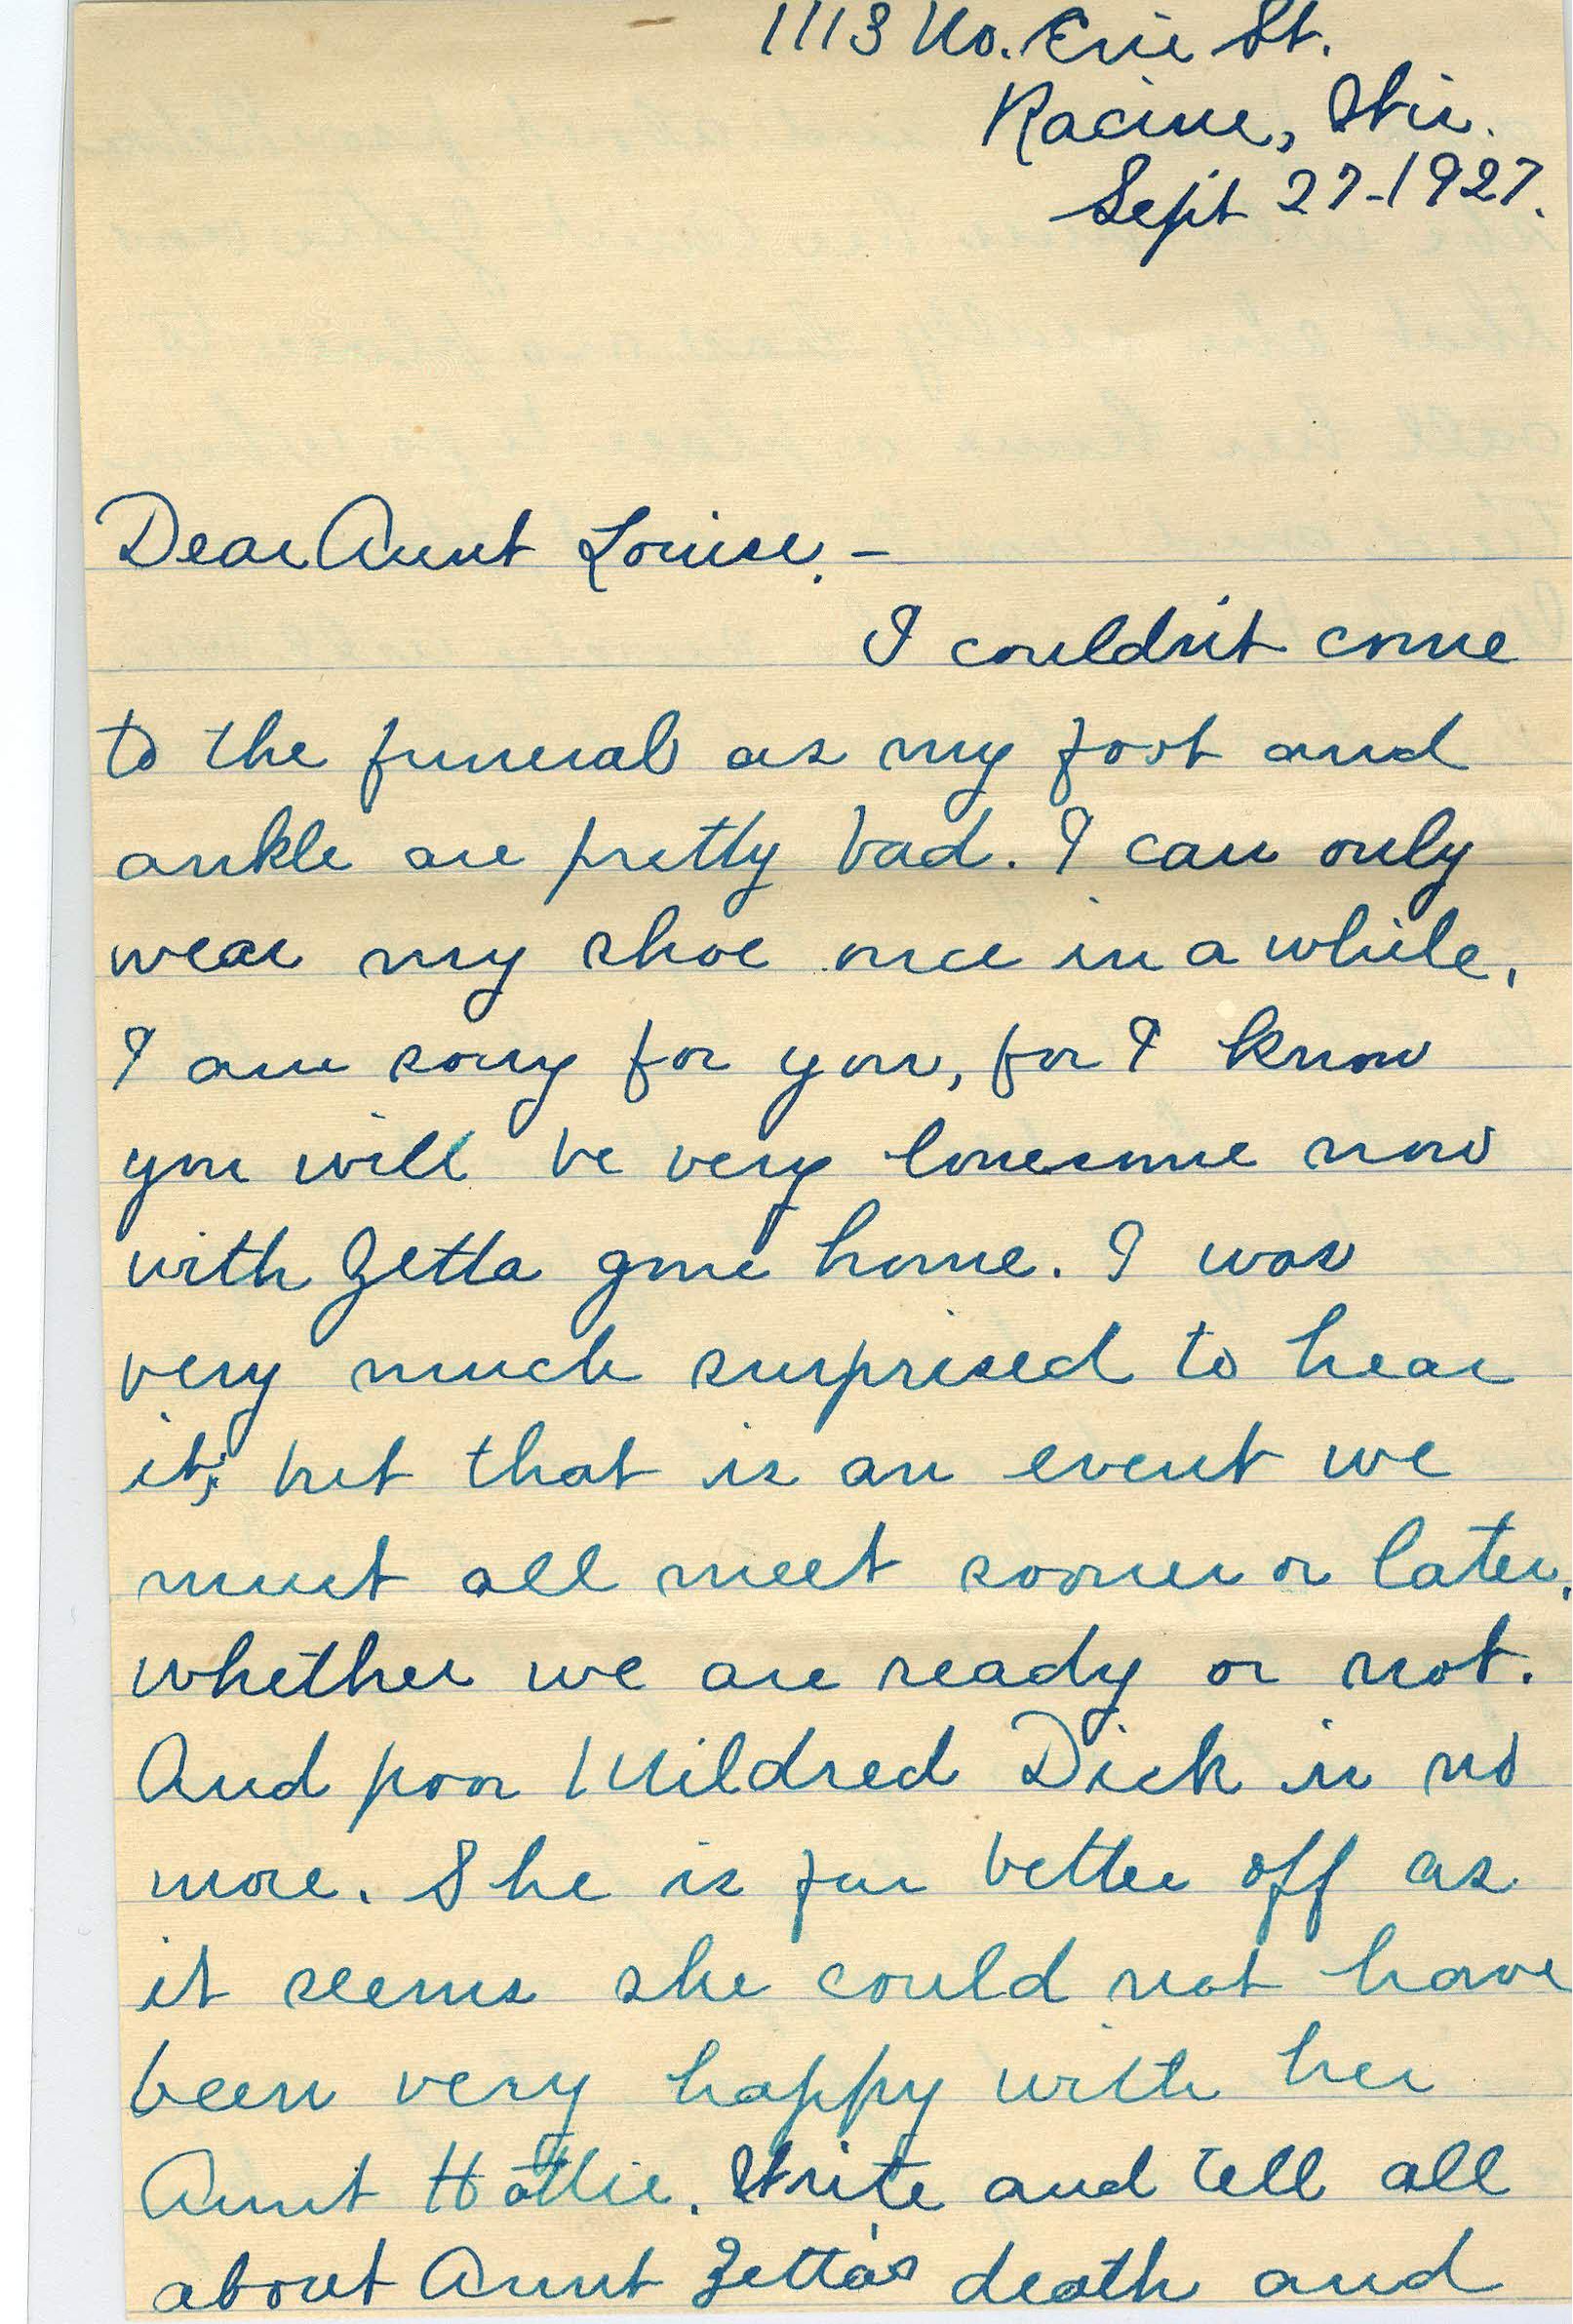 1113 No. Erie St.
Racine, Wis.
Sept 27-1927.
Dear Aunt Louise, -
I couldn't come
to the funeral as my foot and
ankle are pretty bad. I can only
wear my shoe once in a while,
I am sorry for you, for I know
you will be very lonesome now
with Zetta gone home. I was
very much surprised to hear
it; but that is an event we
must all meet sooner or later,
whether we are ready or not.
And poor Mildred Dick is no
more. She is far better off as
it seems she could not have
been very happy with her
Aunt Hattie. Write and tell all
about Aunt Zetta's death and